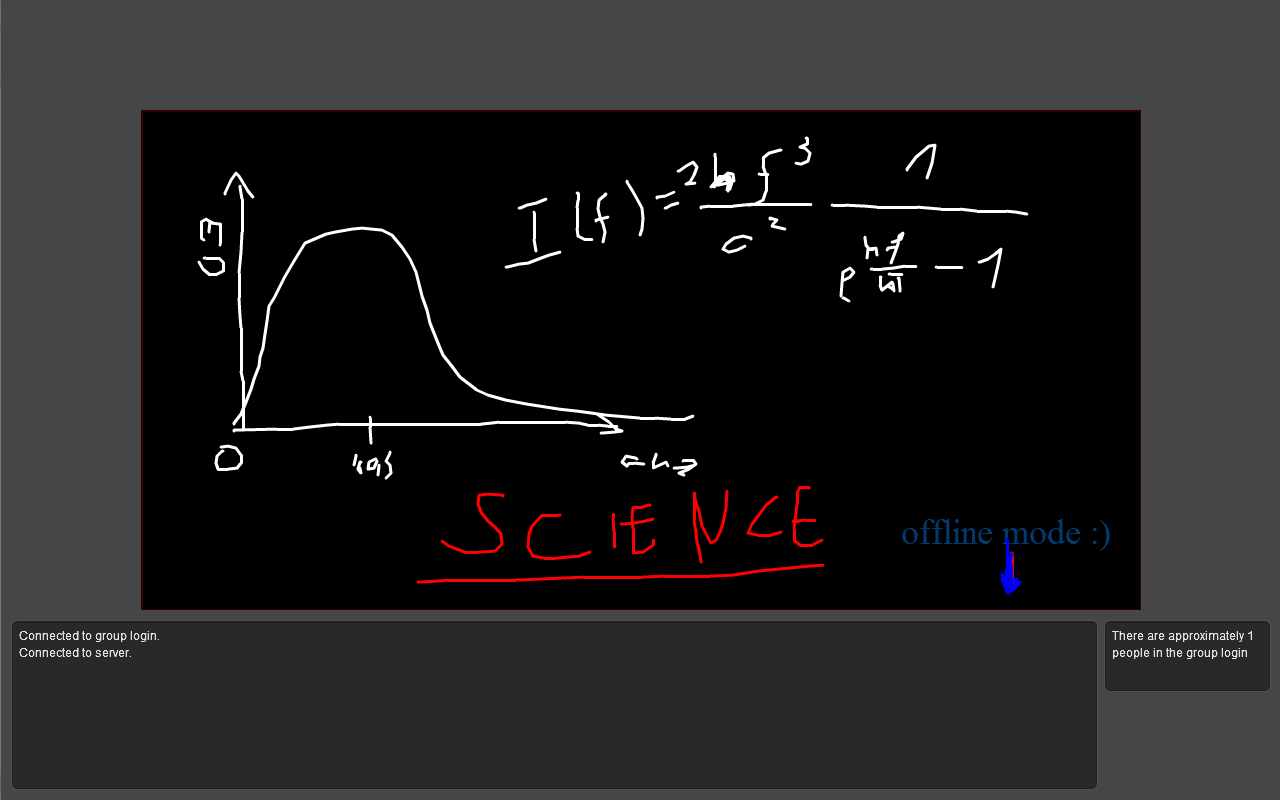 I(f) = 2hf³ / c² 1 / e^(hf/kT) - 1
0
SCIENCE
offline mode :)
Connected to group login.
Connected to server.
There are approximately 1
people in the group login